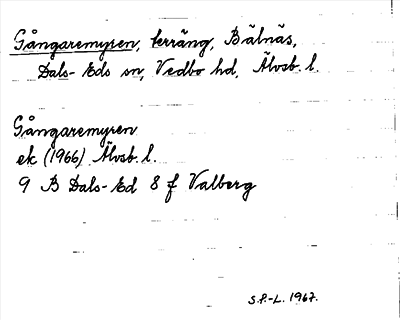 Gångaremyren, terräng, Bälnäs,
Dals-Eds sn, Vedbo hd, Älvsb. l.
Gångaremyren
ek (1966) Älvsb. l.
9 B Dals-Ed 8 f Valberg
S.P.-L. 1967.